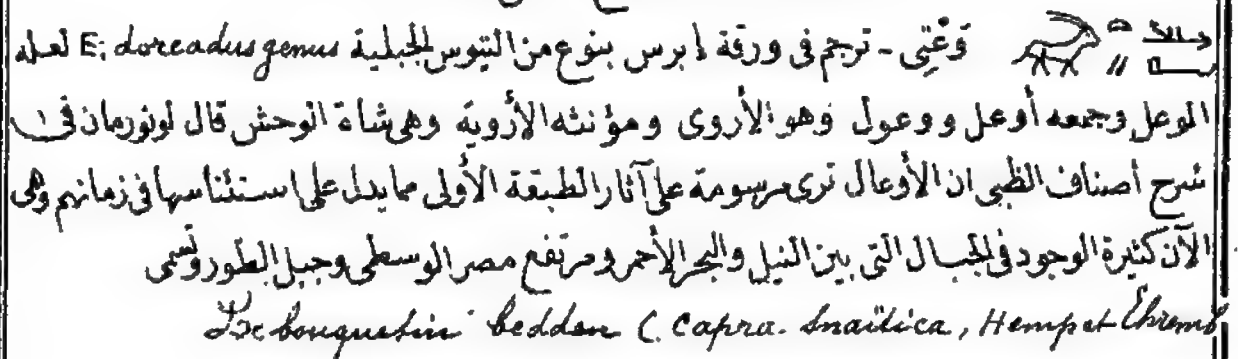 قَوعْتِى - ترجم فى ورقة إبرس بنوع من التيوس الجبلية E; doreadus genus لعله
الوعل وجمعه أوعل ووعول وهو الأروى ومؤنثه الأروية وهى شاة الوحش قال لونورمان فى
شرح أصناف الظبى ان الأوعال ترى مرسومة على آثار الطبقة الأولى مما يدل على استئناسها فى زمانهم وهى
الآن كثيرة الوجود فى الجبال التى بين النيل والبحر الأحمر ومرتفع مصر الوسطى وجبل الطور وتسمى
bouquetin bedden (Capra. Snaïtica, Hemp et Ehremb